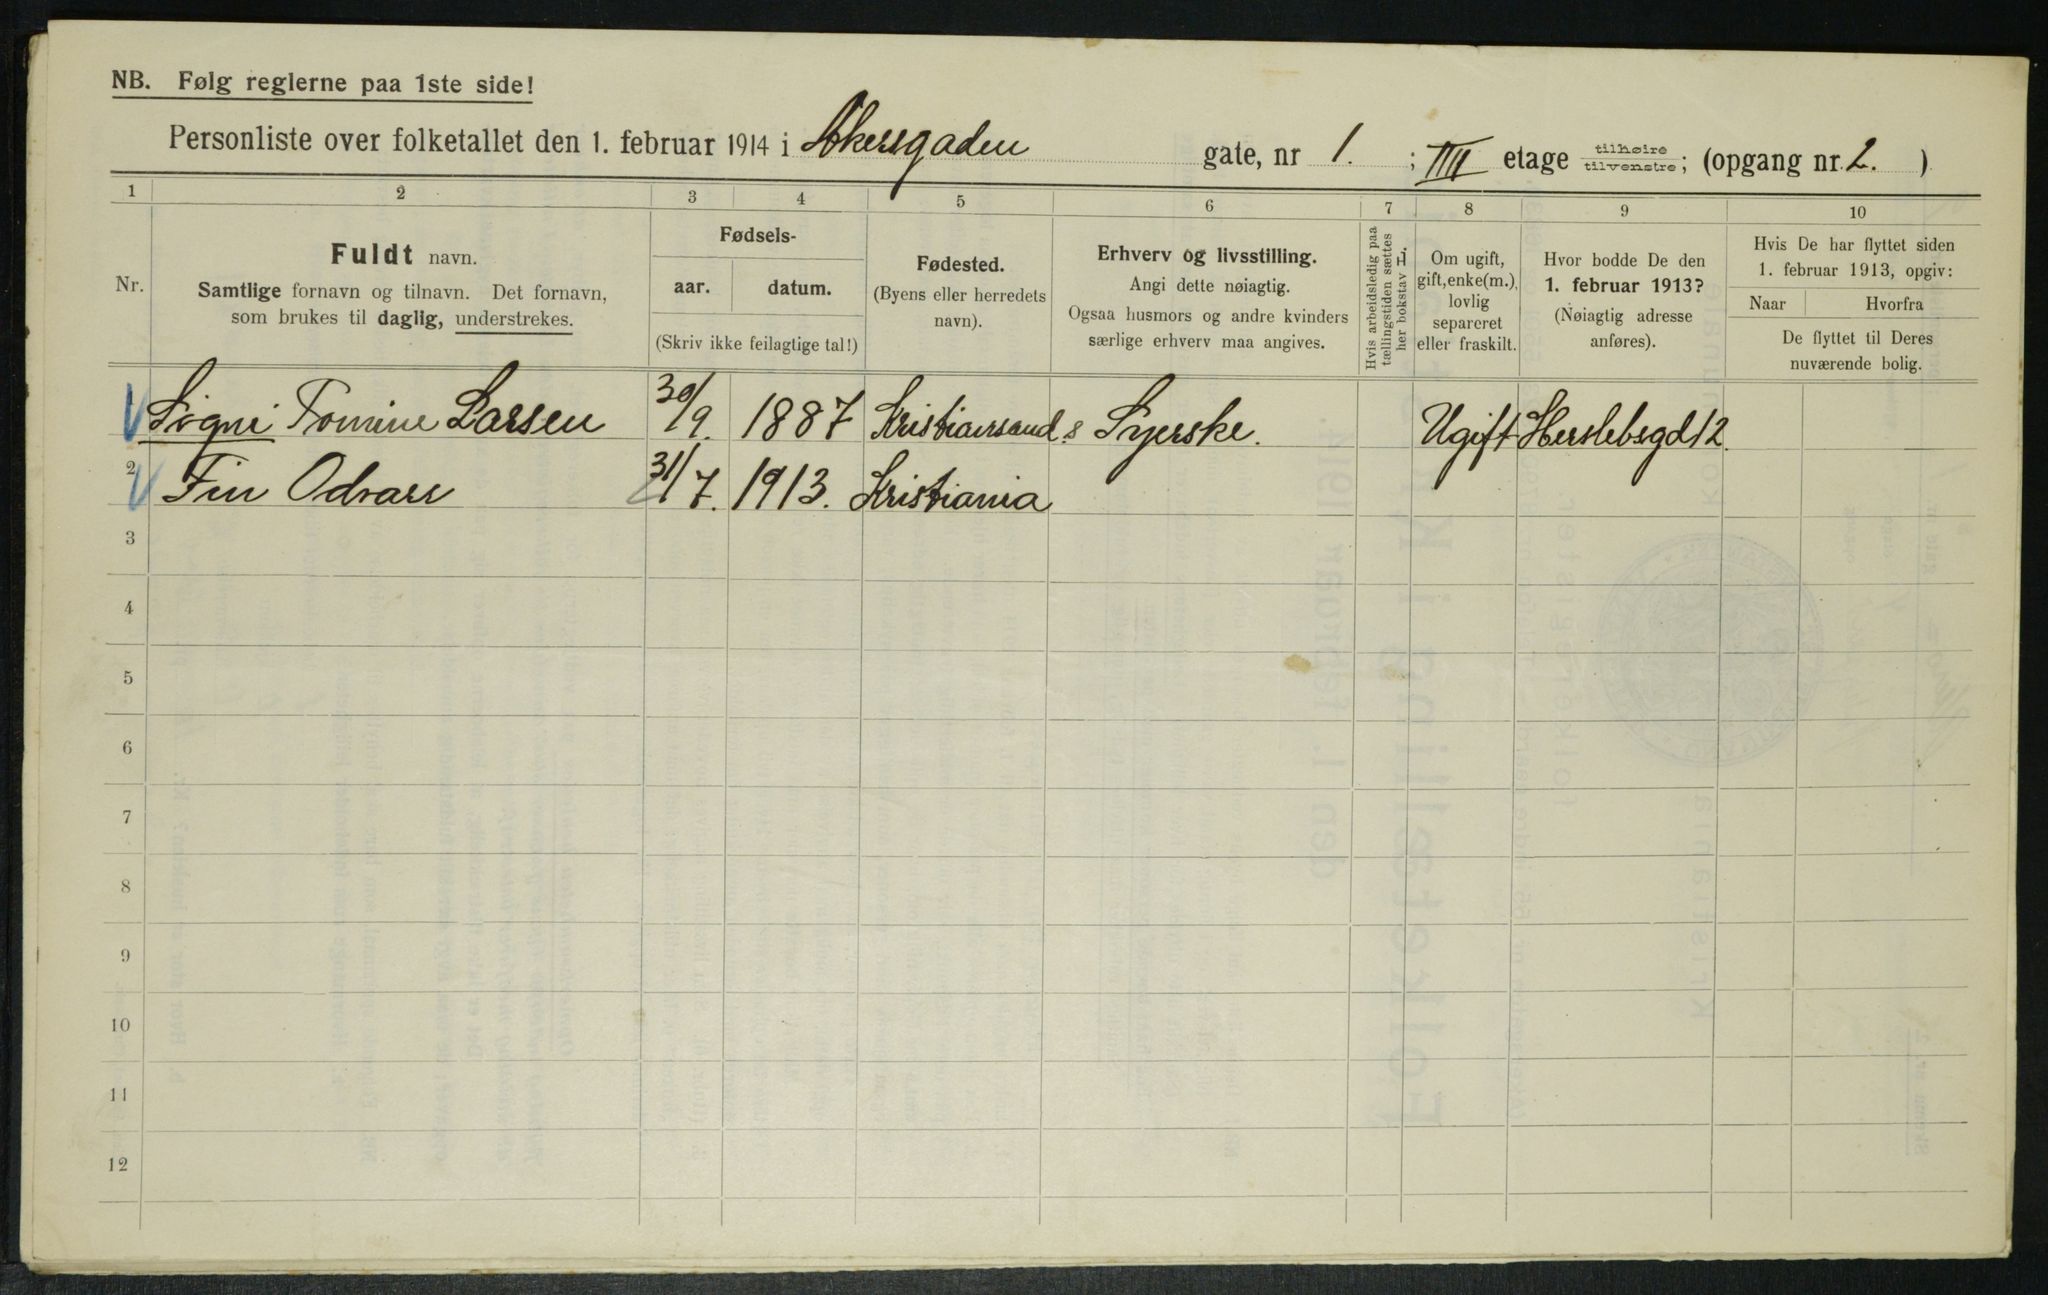 NB. Følg reglerne paa 1ste side!
Personliste over folketallet den 1. februar 1914 i Akersgaden gate, nr 1. ; IIII etage tilhøire / tilvenstre; (opgang nr. 2. )
1 2 3 4 5 6 7 8 9 10
Nr.
Fuldt navn.
Samtlige fornavn og tilnavn. Det fornavn,
som brukes til daglig, understrekes.
Fødsels-
aar. datum.
(Skriv ikke feilagtige tal!)
Fødested.
(Byens eller herredets
navn).
Erhverv og livsstilling.
Angi dette nøiagtig.
Ogsaa husmors og andre kvinders
særlige erhverv maa angives.
Hvis arbeidsledig paa
tællingstiden sættes
her bokstav L.
Om ugift,
gift, enke(m.),
lovlig
separeret
eller fraskilt.
Hvor bodde De den
1. februar 1913?
(Nøiagtig adresse
anføres).
Hvis De har flyttet siden
1. februar 1913, opgiv:
Naar Hvorfra
De flyttet til Deres
nuværende bolig.
1 Signi Tomine Larsen 30/9. 1887 Kristianssand s Syerske. Ugift Herslebsgd 12.
2 Fin Odvarr 31/7. 1913. Kristiania
3
4
5
6
7
8
9
10
11
12